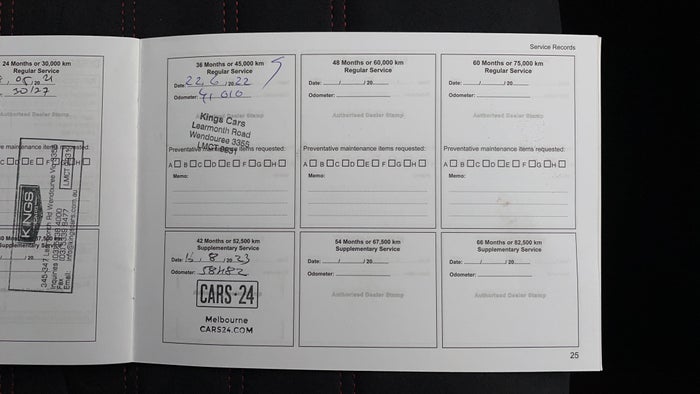 Service Records
24 Months or 30,000 km
Regular Service
05, 21
30127
Authorised Dealer Stamp
maintenance items requested:
C D E F G H
KINGS
345-347 Learmonth Rd Wendouree Vic 3355
LMCT
Fax
Email:
Supplementary Service
/ / 20
36 Months or 45,000 km
Regular Service
Date: 22, 6, 2022
Odometer:
Kings Cars
Learmonth Road
Wendouree 3355
Preventative maintenance items requested:
A B C D E F G H
Memo:
48 Months or 60,000 km
Regular Service
Date: / / 20
Odometer:
Authorised Dealer Stamp
Preventative maintenance items requested:
A B C D E F G H
Memo:
60 Months or 75,000 km
Regular Service
Date: / / 20
Odometer:
Authorised Dealer Stamp
Preventative maintenance items requested:
A B C D E F G H
Memo:
42 Months or 52,500 km
Supplementary Service
Date: 16, 8, 2023
Odometer: 58482
CARS·24
Melbourne
CARS24.COM
54 Months or 67,500 km
Supplementary Service
Date: / / 20
Odometer:
Authorised Dealer Stamp
66 Months or 82,500 km
Supplementary Service
Date: / / 20
Odometer:
Authorised Dealer Stamp
25